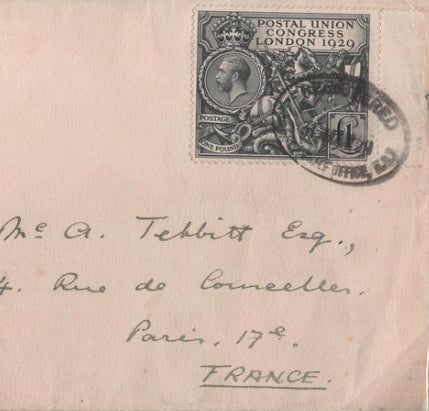 POSTAL UNION
CONGRESS
LONDON 1929
POSTAGE
ONE POUND
£1
REGISTERED
OFFICE, E.C.1
Mc A. Tebbitt Esq.,
4. Rue de Courcelles.
Paris. 17e.
FRANCE.